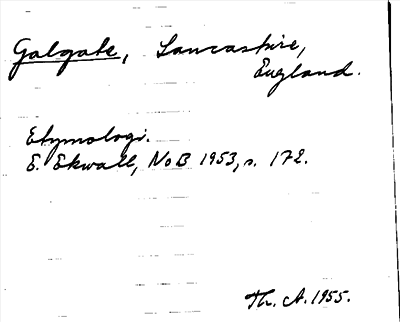 Galgate, Lancashire,
England.
Etymologi.
E. Ekwall, NoB 1953, s. 172.
Th. A. 1955.